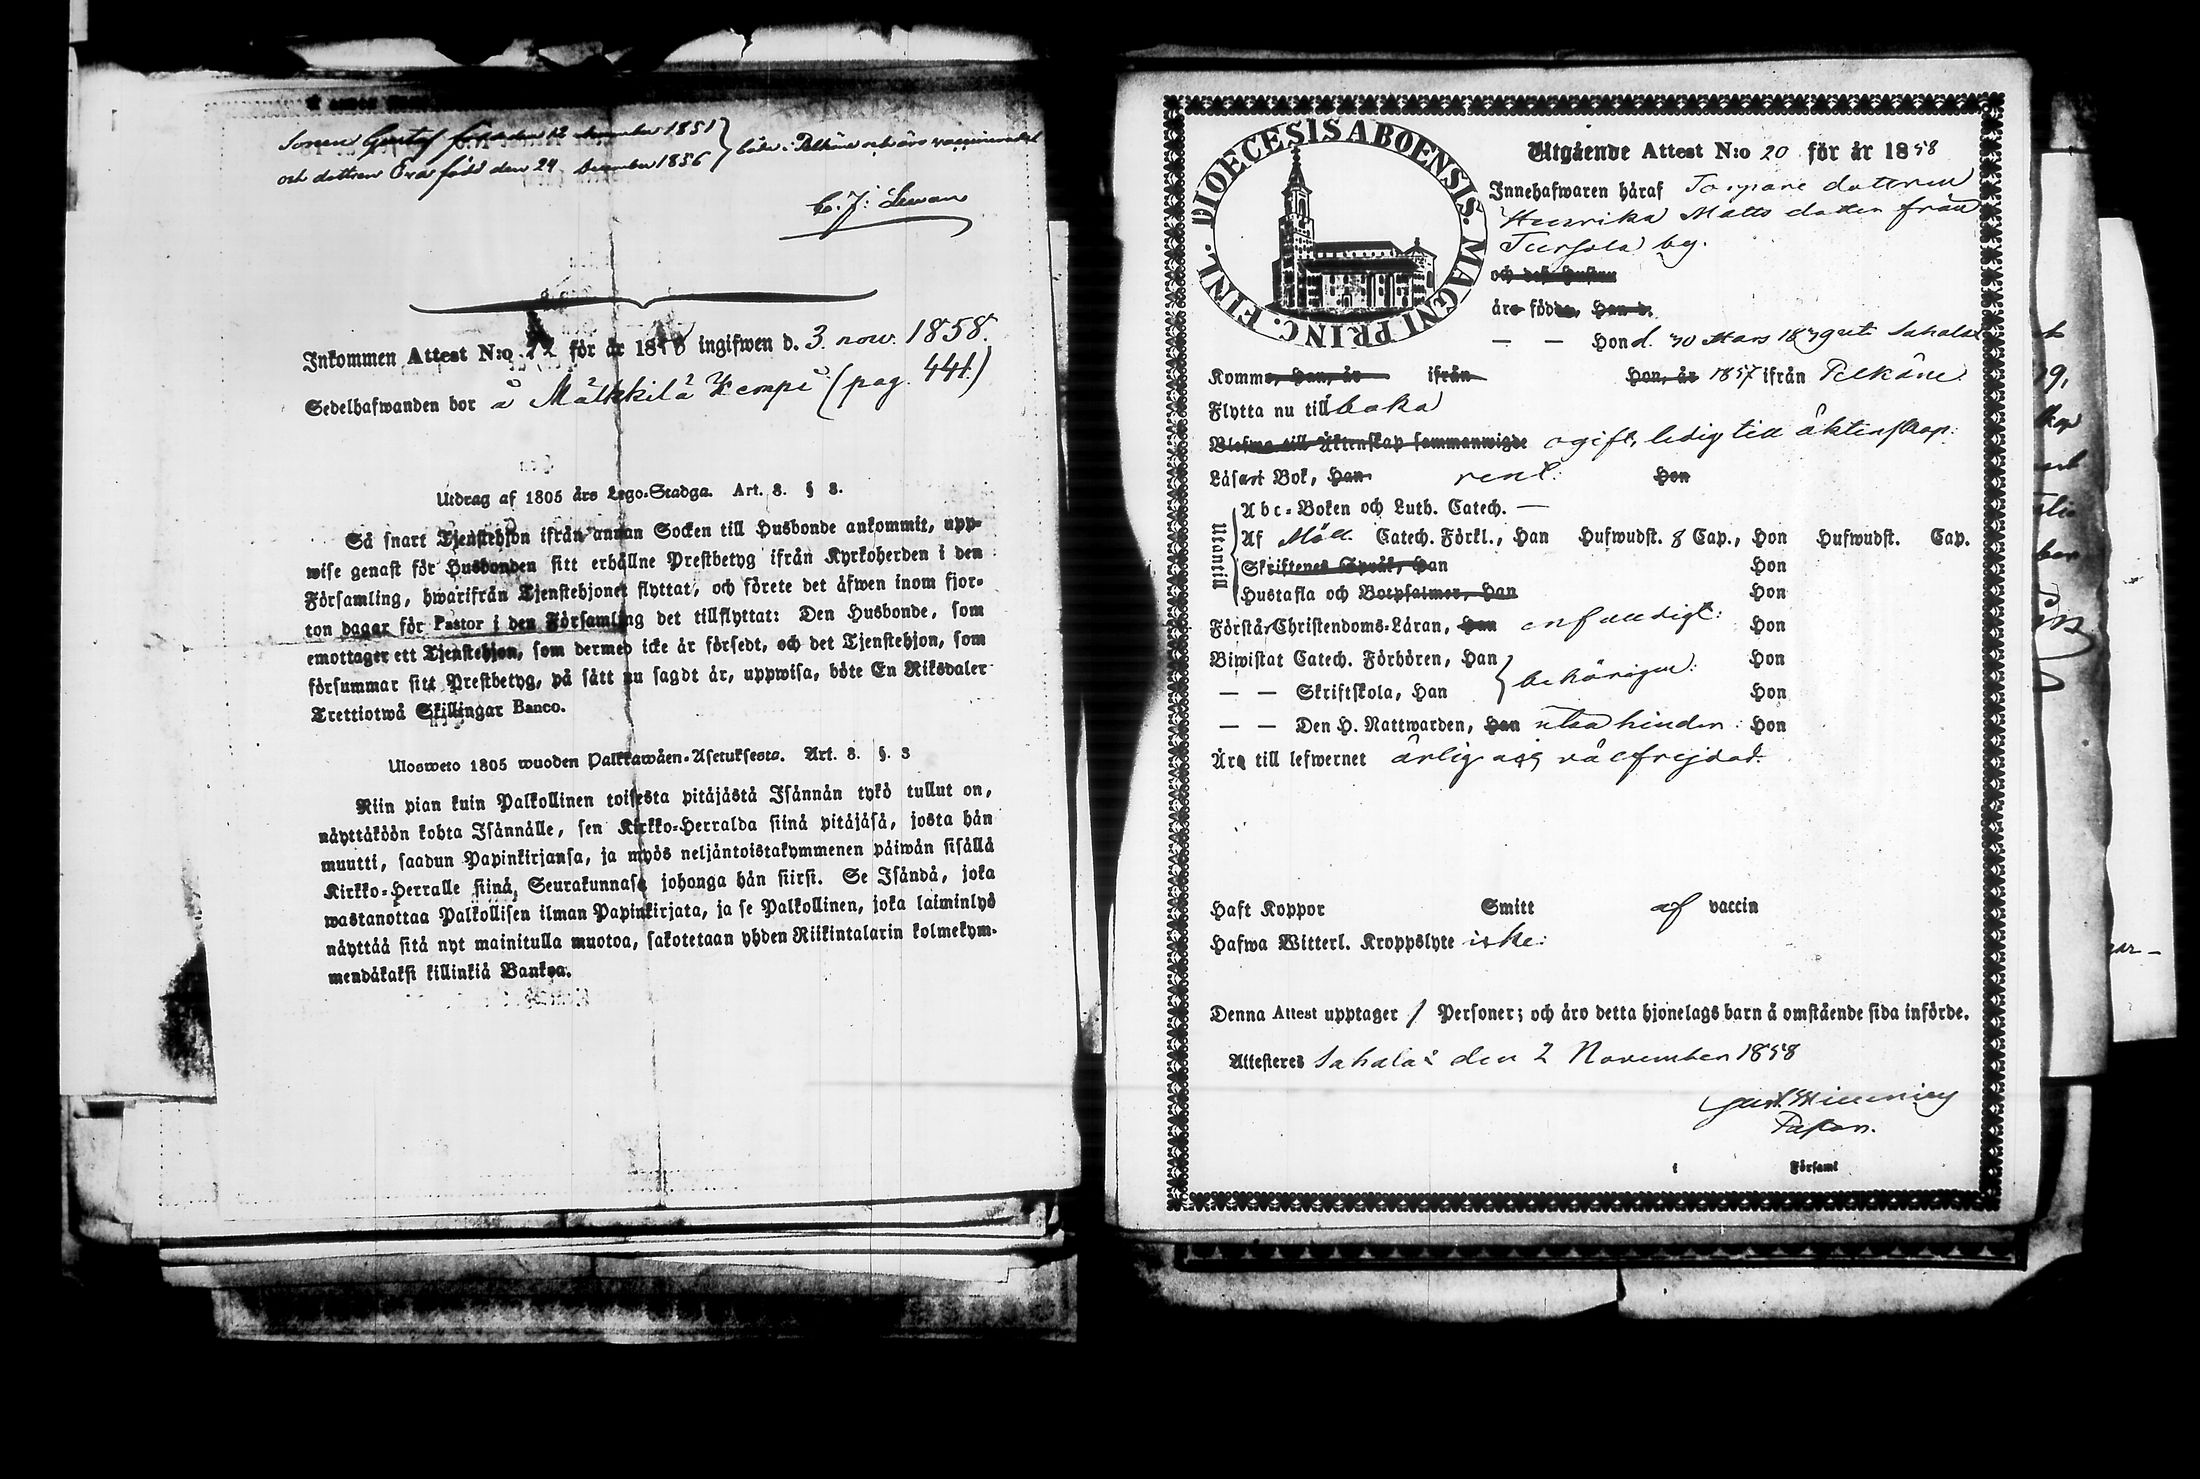 Sonen Gustaf född den 12 november 1851
och dottren Eva född den 24 December 1856 } både i Pelkäne och äro vaccinerade
C. J. Lewan
Inkommen Attest N:o 72 för år 1858 ingifwen d. 3 nov. 1858.
Sedelhafwanden bor å Mälkkilä Kemppi (pag. 441.)
Utdrag af 1805 års Lego-Stadga. Art. 8. § 3.
Så snart Tjenstehjon ifrån annan Socken till Husbonde ankommit, upp-
wise genast för Husbonden sitt erhållne Prestbetyg ifrån Kyrkoherden i den
Församling, hwarifrån Tjenstehjonet flyttat, och förete det äfwen inom fjor-
ton dagar för Pastor i den Församling det tillflyttat: Den Husbonde, som
emottager ett Tjenstehjon, som dermed icke är försedt, och det Tjenstehjon, som
försummar sitt Prestbetyg, på sätt nu sagdt är, uppwisa, böte En Riksdaler
Trettiotwå Skillingar Banco.
Ulosweto 1805 wuoden Palkkawäen-Asetuksesta. Art. 8. §. 3
Niin pian kuin Palkollinen toisesta pitäjästä Isännän tykö tullut on,
näyttäköön kohta Isännälle, sen Kirkko-Herralda siinä pitäjäsä, josta hän
muutti, saadun Papinkirjansa, ja myös neljäntoistakymmenen päiwän sisällä
Kirkko-Herralle siinä Seurakunnasa johonga hän siirsi. Se Isändä, joka
wastanottaa Palkollisen ilman Papinkirjata, ja se Palkollinen, joka laiminlyö
näyttää sitä nyt mainitulla muotoa, sakotetaan yhden Riikintalarin kolmekym-
mendäkaksi killinkiä Bankoa.
DIOECESIS ABOENSIS. MAGNI PRINC. FINL.
Utgående Attest N:o 20 för år 1858
Innehafwaren häraf Torpare dottren
Henrika Matts dotter från
Tursola by.
och dess hustru
äro födde, Han d.
— — Hon d. 30 Mars 1839 uti Sahalax
Komne, Han, år ifrån Hon, år 1857 ifrån Pelkäne.
Flytta nu till baka
Blefwo till Äktenskap sammanwigde ogift, ledig till äktenskap.
Läsa i Bok, Han rent. Hon
Utantill
Abc-Boken och Luth. Catech. —
Af Möll. Catech. Förkl., Han Hufwudst. 8 Cap., Hon Hufwudst. Cap.
Skriftenes Språk, Han Hon
Hustafla och Botpsalmer, Han Hon
Förstår Christendoms-Läran, Han enfaldigt. Hon
Biwistat Catech. Förhören, Han } behörigen. Hon
— — Skriftskola, Han Hon
— — Den H. Nattwarden, Han utan hinder. Hon
Äro till lefwernet ärlig och välfrejdad.
Haft Koppor Smitt af vaccin
Hafwa Witterl. Kroppslyte icke.
Denna Attest upptager 1 Personer; och äro detta hjonelags barn å omstående sida införde.
Attesteres Sahalax den 2 November 1858
Pastor.
i Församl